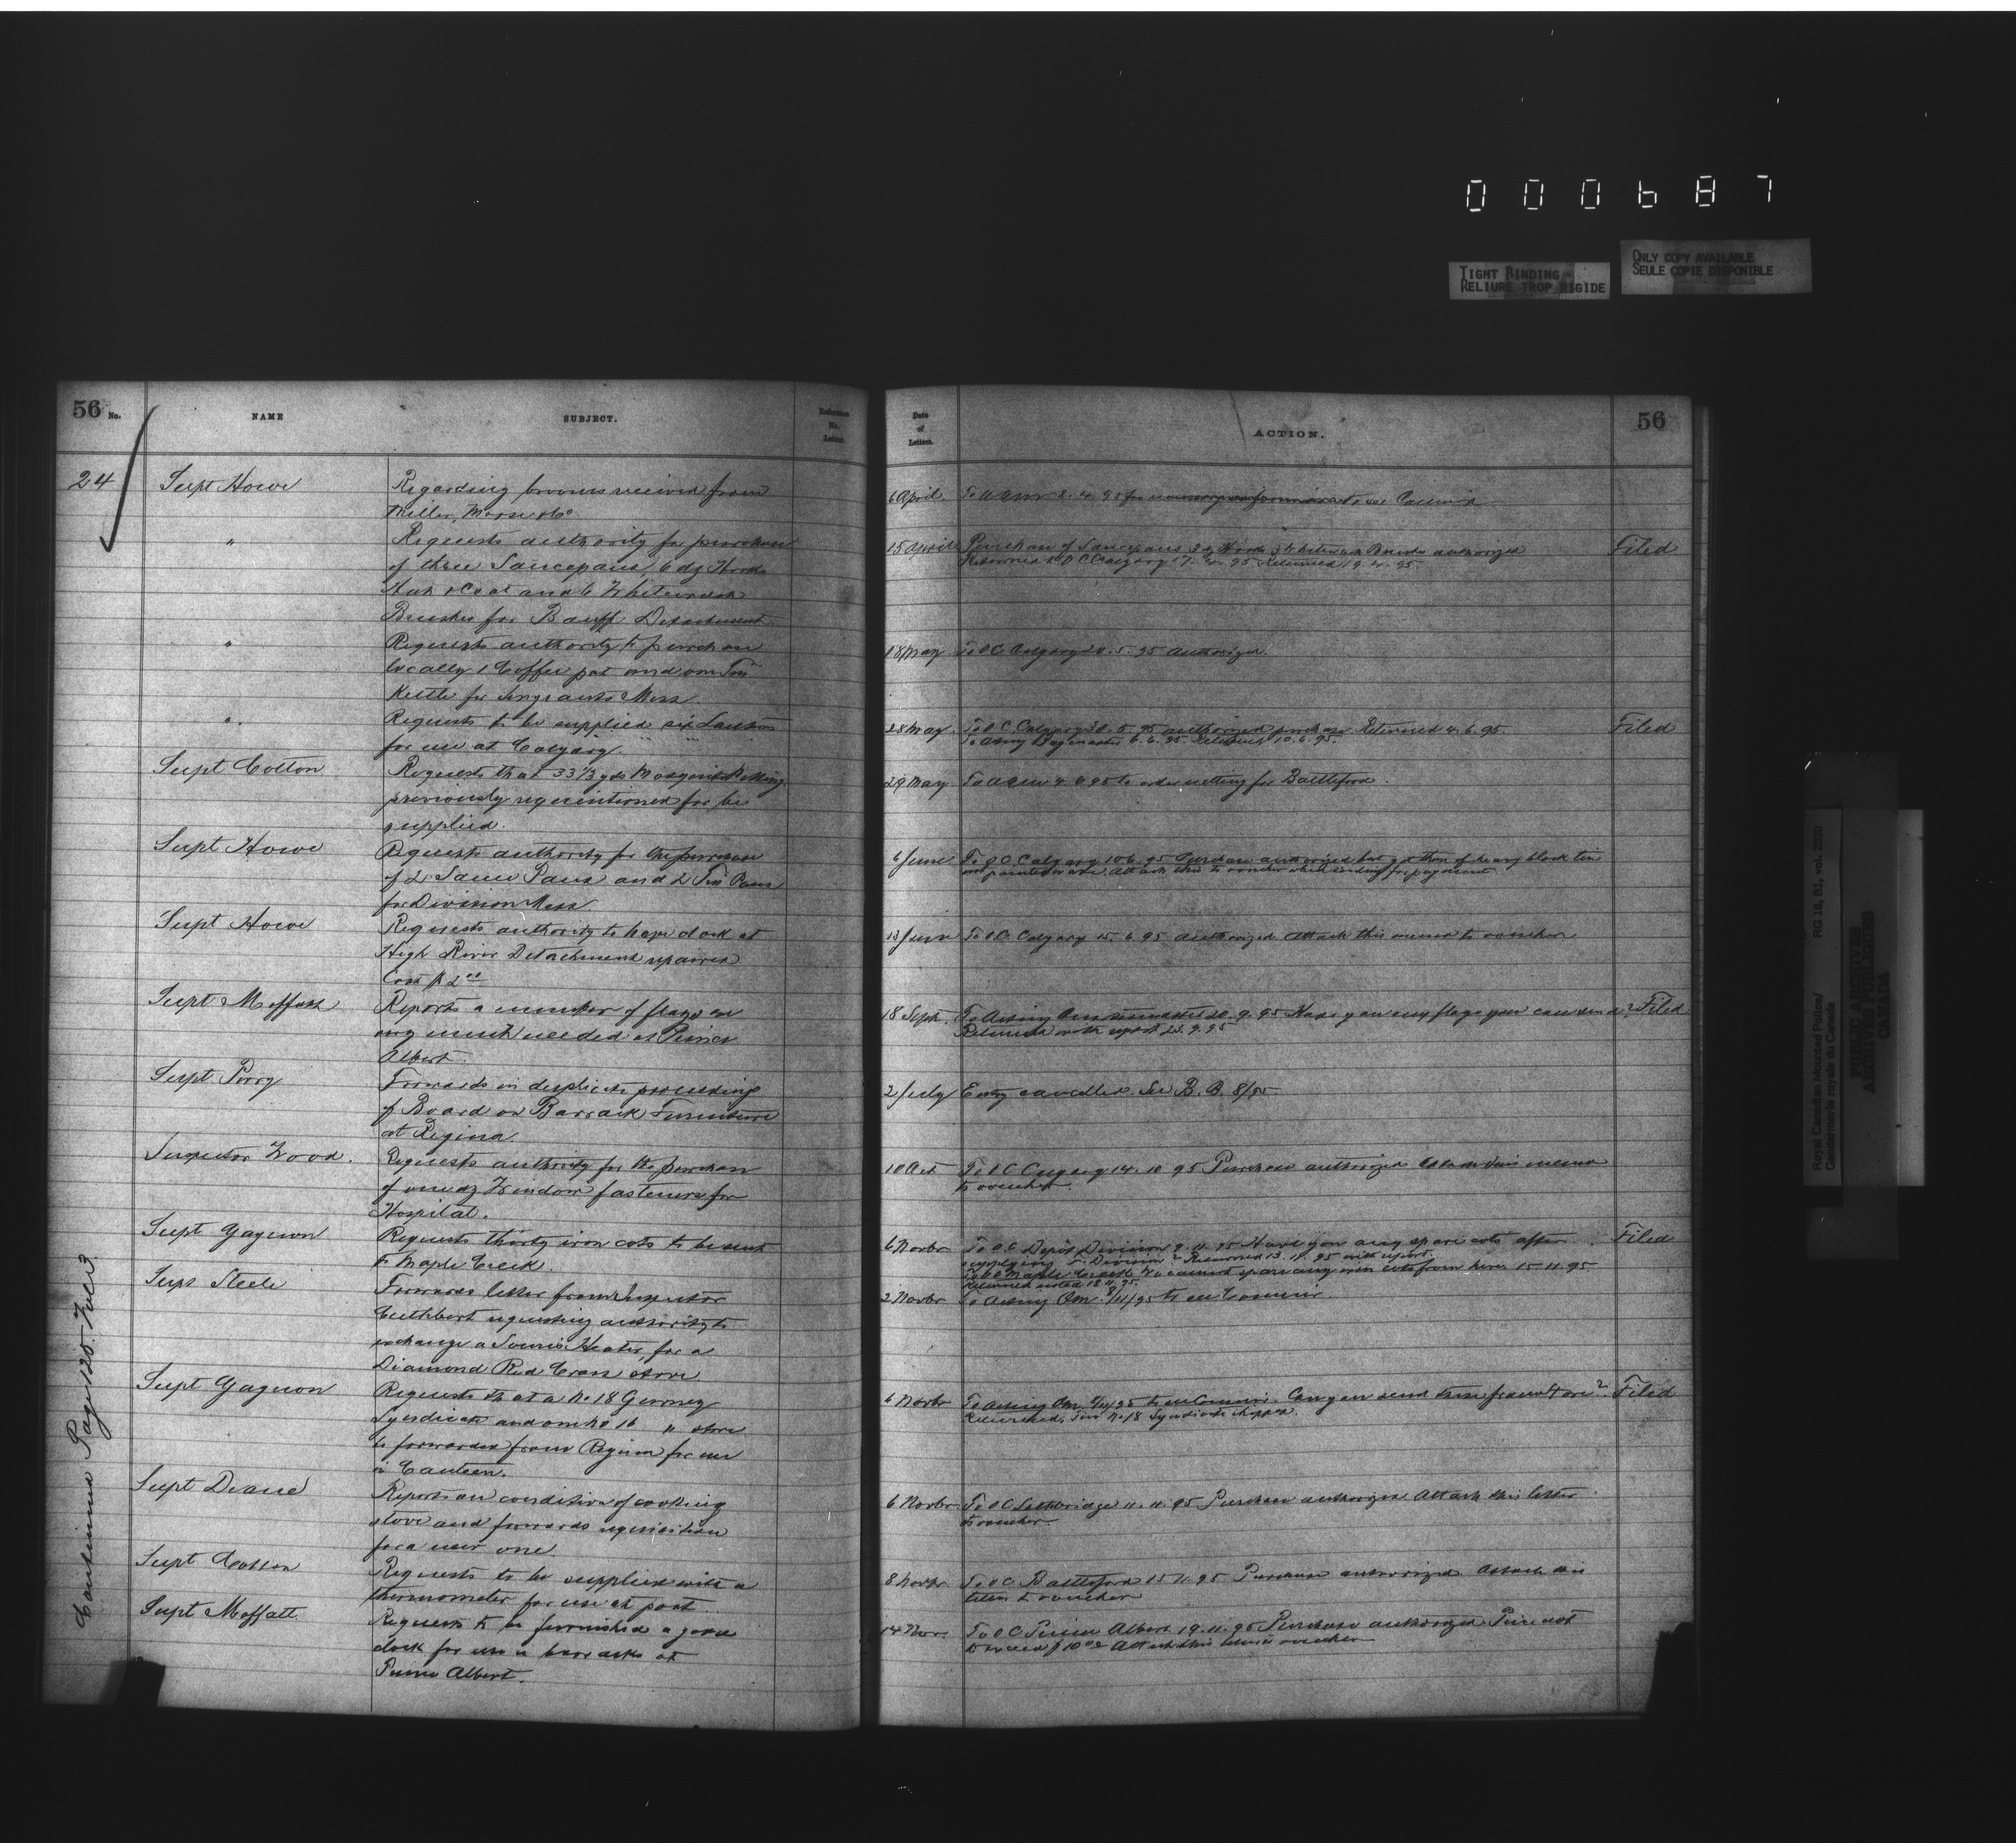 000687
TIGHT BINDING
RELIURE TROP RIGIDE
ONLY COPY AVAILABLE
SEULE COPIE DISPONIBLE
56 No.
NAME
SUBJECT.
Reference No. Letter.
24
Supt Howe
Regarding brooms received from
Miller, Morse & Co
"
Requests authority for purchase
of three Saucepans, 6 dz Hooks
Hat & Coat and 6 Whitewash
Brushes for Banff Detachment
"
Requests authority to purchase
locally 1 Coffee pot and one Tin
Kettle for Sergeants Mess
"
Requests to be supplied six
for use at Calgary " "
Supt Cotton
Requests that 33 1/3 yds Mosquito Netting
previously requisitioned for be
supplied.
Supt Howe
Requests authority for the purchase
of 2 Sauce Pans and 2 Tin Pans
for Division Mess
Supt Howe
Requests authority to have clock at
High River Detachment repaired
Cost $2 00
Supt Moffatt
Reports a number of flags are
very much needed at Prince
Albert
Supt Perry
Forwards in duplicate proceedings
of Board on Barrack Furniture
at Regina
Inspector Wood.
Requests authority for the purchase
of one dz Window fasteners for
Hospital.
Supt Gagnon
Requests thirty iron cots to be sent
to Maple Creek.
Supt Steele
Forwards letter from Inspector
Cuthbert requesting authority to
exchange a Souris Heater, for a
Diamond Red Cross stove
Supt Gagnon
Requests that a No 18 Gurney
Syndicate and one No 16 " stove
be forwarded from Regina for use
in Canteen.
Supt Deane
Reports on condition of cooking
stove and forwards requisition
for a new one.
Supt Cotton
Requests to be supplied with a
thermometer for use at post.
Supt Moffatt
Requests to be furnished a good
clock for use in barracks at
Prince Albert.
Continued Page 125. Folio 3
Date of Letters.
ACTION.
56
6 April
To 8. 4. 95 for to see Commr
15 April
Purchase of Saucepans 3 dz Hooks 3 Whitewash Brushes authorized
Filed
Returned to OC Calgary 17. 4. 95 Returned 19. 4. 95
18 May
To OC Calgary 5. 95 Authorized.
28 May
To OC Calgary 30. 5. 95 authorized purchase Returned 4. 6. 95.
Filed
To Acting 6. 6. 95 Returned 10. 6. 95.
29 May
To 4. 6. 95 to order netting for Battleford.
6 June
To OC Calgary 10. 6. 95 Purchase authorized but get them of heavy block tin
not ware. Attach this to voucher when sending for payment
13 June
To OC Calgary 15. 6. 95 authorized attach this memo to voucher
18 Sept.
To Acting 20. 9. 95 Have you any flags you can send?
Filed
Returned with report 23. 9. 95
2 July
Entry cancelled See B. B. 8/95
10 Oct
To OC Calgary 14. 10 95 Purchase authorized Attach this memo
to voucher.
6 Novbr
To OC Depot Division 9. 11. 95 Have you any spare cots after
Filed
supplying Division? Returned 13. 11. 95 with report.
To OC Maple Creek We cannot spare any iron cots from here 15 11. 95
Returned noted 18. 11. 95.
2 Novbr
To Acting QM 8/11/95 to see Commr.
6 Novbr
To Acting QM /11/95 to see Commr. Can you send these from Store?
Filed
Returned, No 18 Syndicate shipped.
6 Novbr
To OC Lethbridge 11. 11. 95 Purchase authorized Attach this letter
to voucher.
8 Novbr
To OC Battleford 15 11. 95 Purchase authorized Attach this
letter to voucher
14 Nov.
To OC Prince Albert 19. 11. 95 Purchase authorized Price not
to exceed $10 00 Attach this letter to voucher
RG 18, B1, vol. 2020
Royal Canadian Mounted Police/
Gendarmerie royale du Canada
PUBLIC ARCHIVES
ARCHIVES PUBLIQUES
CANADA